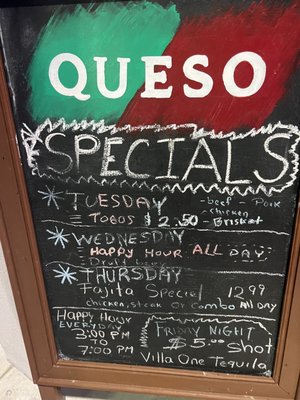 QUESO
SPECIALS
TUESDAY - beef - Pork
- chicken
TOCOS $2.50 - Brisket
WEDNESDAY
HAPPY HOUR ALL DAY
THURSDAY
Fajita Special 12.99
chicken, steak or combo All DAY
HAPPY HOUR
EVERYDAY
3:00 PM
TO
7:00 PM
FRIDAY NIGHT
$5.00 SHOT
Villa One Tequila